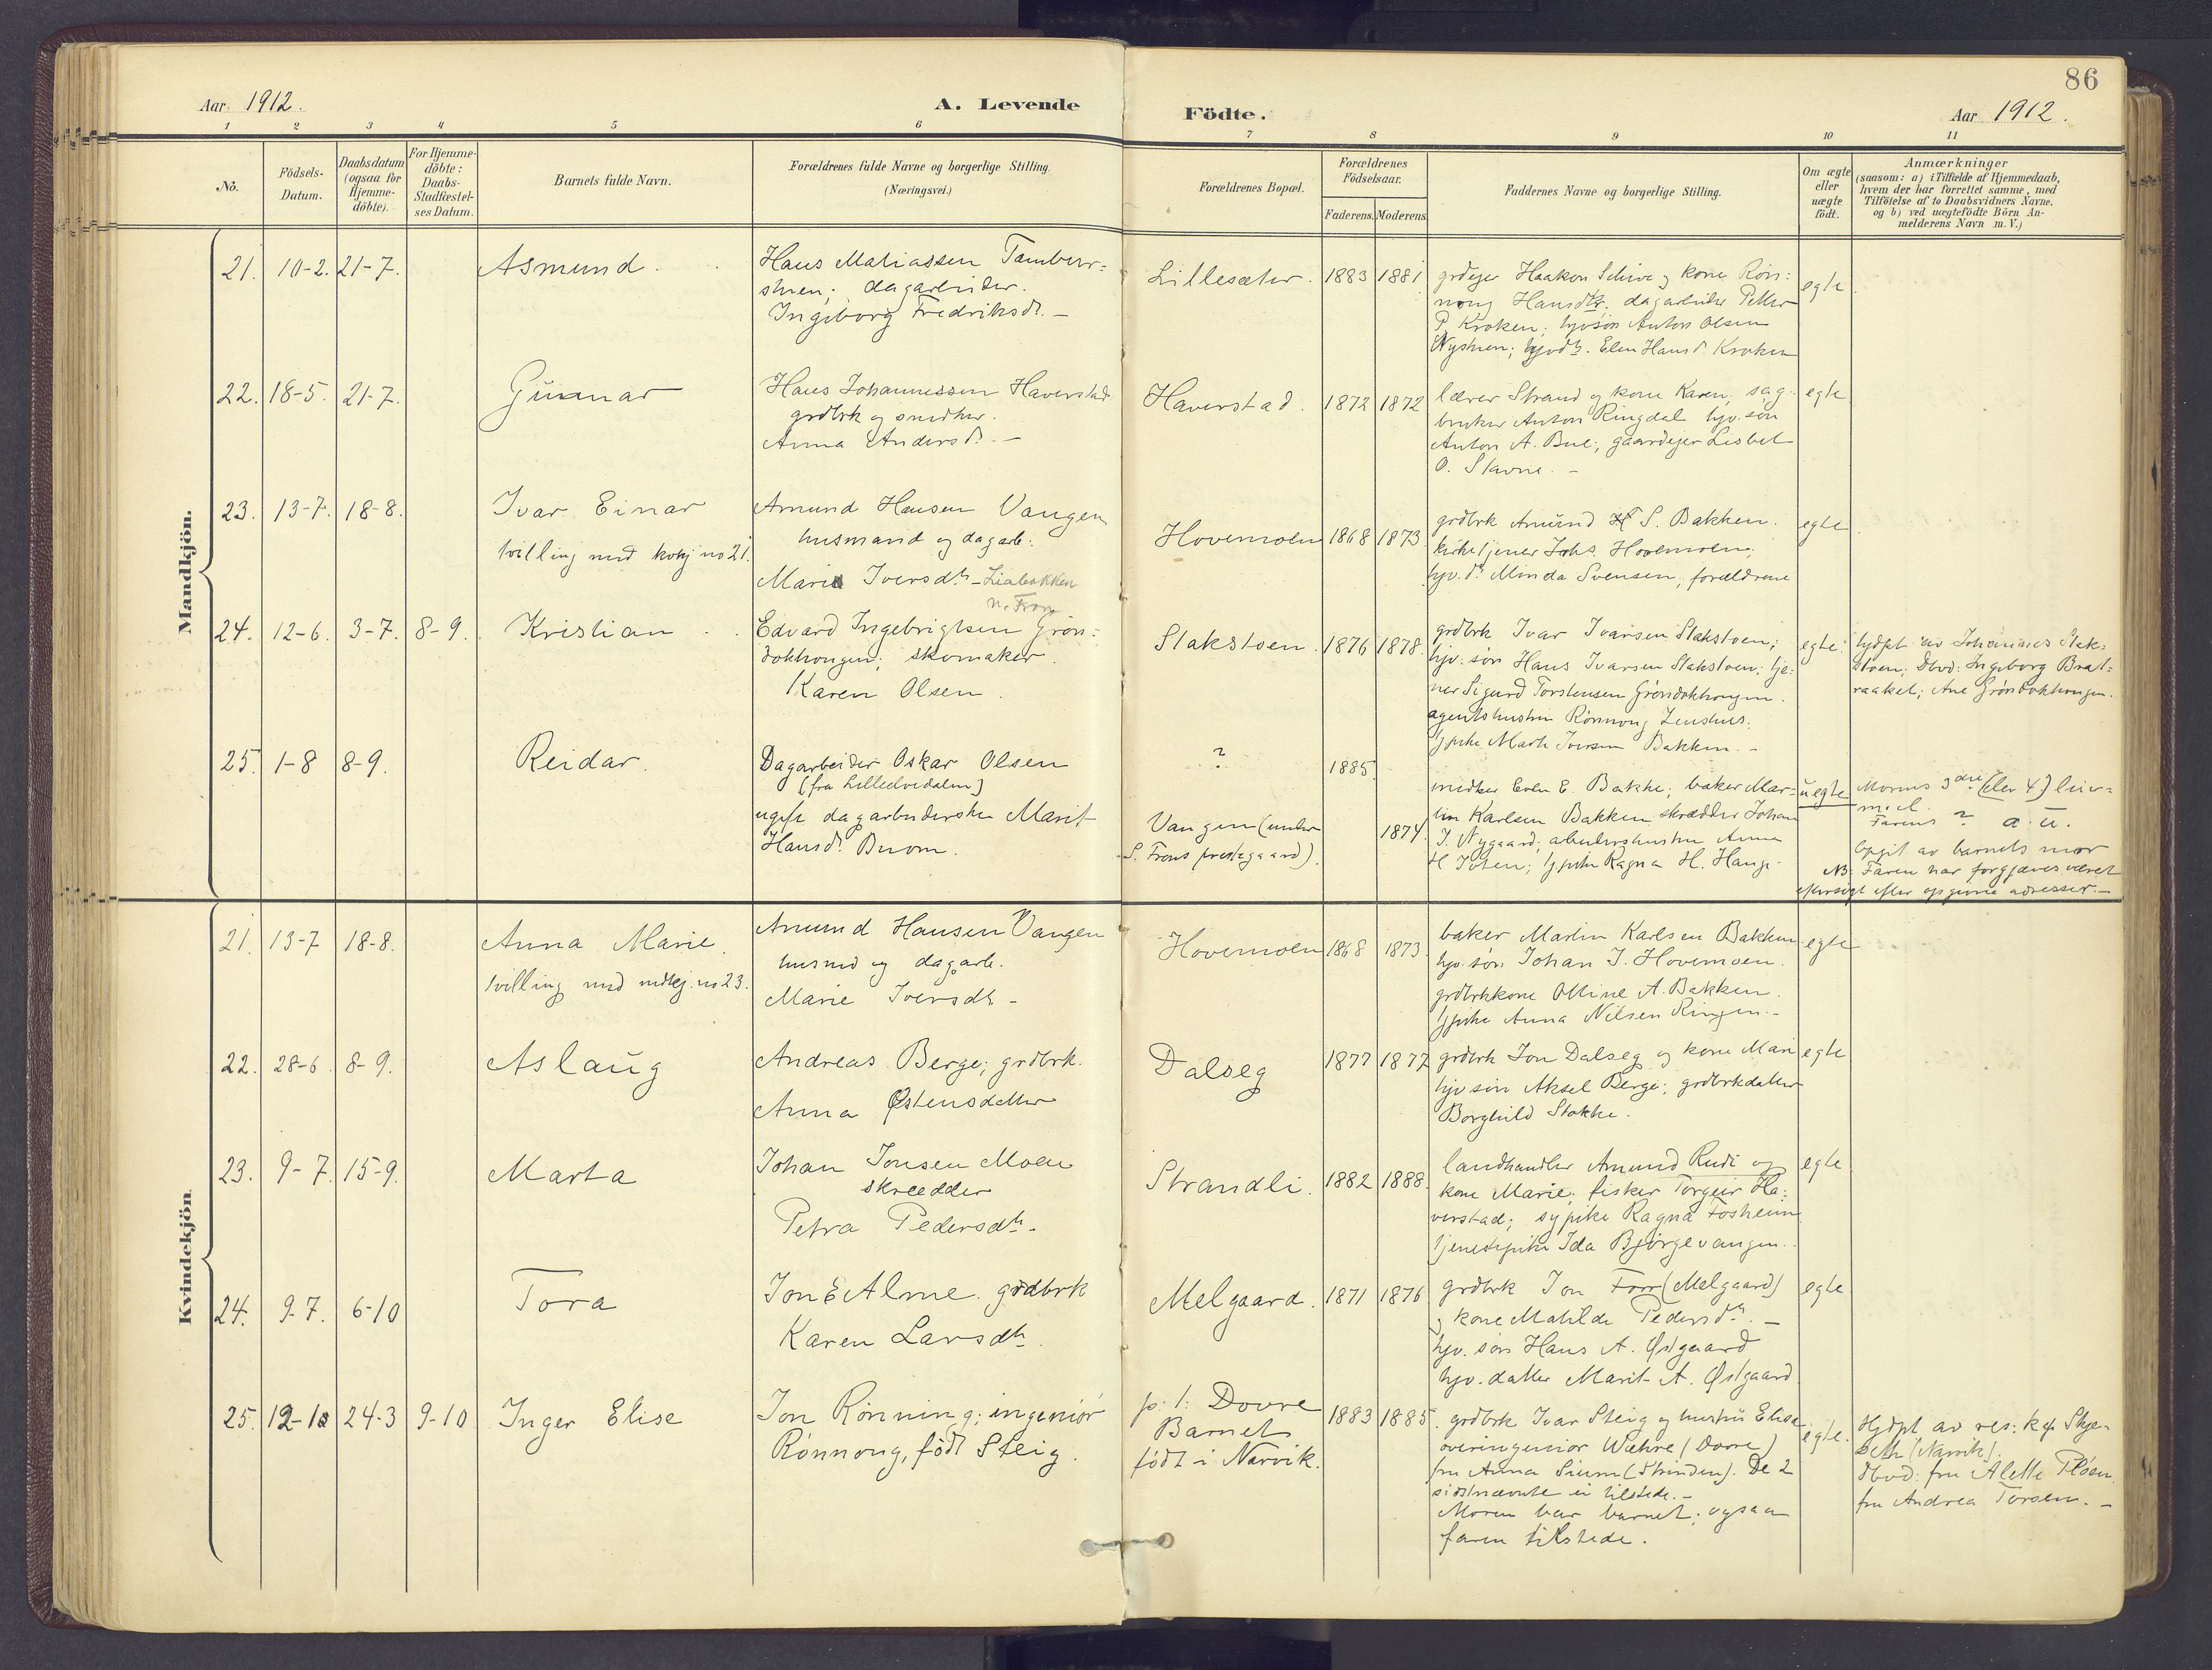 86
Aar 1912.
A. Levende
Födte.
Aar 1912.
1 2 3 4 5 6 7 8 9 10 11
No.
Födsels-
Datum.
Daabsdatum
(ogsaa for
Hjemme-
döbte).
For Hjemme-
döbte:
Daabs-
Stadfæstel-
ses Datum.
Barnets fulde Navn.
Forældrenes fulde Navne og borgerlige Stilling.
(Næringsvei.)
Forældrenes Bopæl.
Forældrenes
Födselsaar.
Faderens. Moderens.
Faddernes Navne og borgerlige Stilling.
Om ægte
eller
uægte
födt.
Anmærkninger
(saasom: a) i Tilfælde af Hjemmedaab,
hvem der har forrettet samme, med
Tilföielse af to Daabsvidners Navne,
og b) ved uægtefödte Börn An-
melderens Navn m. V.)
Mandkjön.
21. 10-2. 21-7.
Asmund.
Hans Matiassen Tambur=
stuen; dagarbeider.
Ingeborg Fredriksdr. –
Lillesæter.
1883 1881
grdejer Haakon Schive og kone Rön=
noug Hansdtr. dagarbeider Petter
P. Kroken; hjvsön Anton Olsen
Nystuen; hjvdtr. Elen Hansdr Kroken
egte
22. 18-5. 21-7.
Gunnar
Hans Johannessen Haverstad
grdbrk og snedker.
Anna Andersdr. –
Haverstad.
1872 1872
lærer Strand og kone Karen, sag-
bruker Anton Ringdal hjv.sön
Anton A. Bue; gaardejer Lisbet
O. Stavne. –
egte
23. 13-7. 18-8.
Ivar Einar
tvilling med kvkj no 21.
Amund Hansen Vangen
husmand og dagarb.
Marie Iversdtr – Liabakken
n. Fron
Hovemoen
1868 1873
grdbrk Amund S. Bakken.
kirketjener Johs. Hovemoen;
hjv.dr Minda Svensen, forældrene
egte
24. 12-6. 3-7. 8-9.
Kristian
Edvard Ingebrigtsen Grön=
dokhougen; skomaker.
Karen Olsen.
Slakstoen.
1876 1878.
grdbrk Ivar Ivarsen Slakstoen;
hjv.sön Hans Ivarsen Slakstoen; tje=
ner Sigurd Torstensen Gröndokhougen.
agentshustru Rönnoug
tjpike Marte Iversen Bakken. –
egte.
hjdpt av Johannes Slak=
stoen; Dbvd: Ingeborg Brat=
raaket; Ane Gröndokhougen.
25. 1-8 8-9.
Reidar.
Dagarbeider Oskar Olsen
(fra Lilleelvedalen)
ugift dagarbeiderske Marit
Hansdr. Buom.
?
Vangen (under
S. Frons prestegaard).
1885.
1874
snedker Even E. Bakke; baker Mar=
tin Karlsen Bakken skrædder Johan
J. Nygaard; arbeidershustru Anna
H. Joten; tjpike Ragna H. Hauge
uegte
Morens 3die (eller 4.) leier=
maal.
Farens ? a. u.
Opgit av barnets mor
NB: Faren har forgjæves været
eftersögt efter opgivne adresser. –
Kvindekjön.
21. 13-7 18-8.
Anna Marie.
tvilling med mdkj. no 23.
Amund Hansen Vangen
husmd og dagarb.
Marie Iversdtr –
Hovemoen
1868 1873.
baker Martin Karlsen Bakken
hjv.sön Johan J. Hovemoen.
grdbrkkone Olline A. Bakken.
tjpike Anna Nilsen Ringen. –
egte
22. 28-6. 8-9.
Aslaug
Andreas Berge; grdbrk.
Anna Østensdatter
Dalseg
1877 1877
grdbrk Jon Dalseg og kone Mari
hjvsön Aksel Berge; grdbrkdatter
Borghild Stokke.
egte
23. 9-7. 15-9.
Marta
Johan Jonsen Moen
skrædder
Petra Pedersdtr.
Strandli.
1882 1888.
landhandler Amund Rudi og
kone Marie; fisker Torgeir Ha=
verstad; sypike Ragna Fosheim
tjenestepike Ida Björgevangen.
egte
24. 9-7. 6-10
Tora
Jon E Alme. grdbrk
Karen Larsdtr.
Melgaard.
1871 1876
grdbrk Jon Forr (Melgaard)
og kone Matilde Pedersdtr. –
hjv. sön Hans A. Østgaard
hjv. datter Marit A. Østgaard
egte
25. 12-10 24-3 9-10
Inger Elise
Jon Rönning; ingeniör
Rönnoug, födt Steig.
p. t. Dovre
Barnet
födt i Narvik.
1883 1885.
grdbrk Ivar Steig og hustru Elise
overingeniör Wæhre (Dovre)
fru Anna Sium (Strinden). De 2
sidstnævnte ei tilstede. –
Moren bar barnet; ogsaa
faren tilstede.
egte.
Hjdpt av res: kap Skje=
seth (Narvik).
Dbvd: fru Alette Pløen
fru Andrea Torsen. –